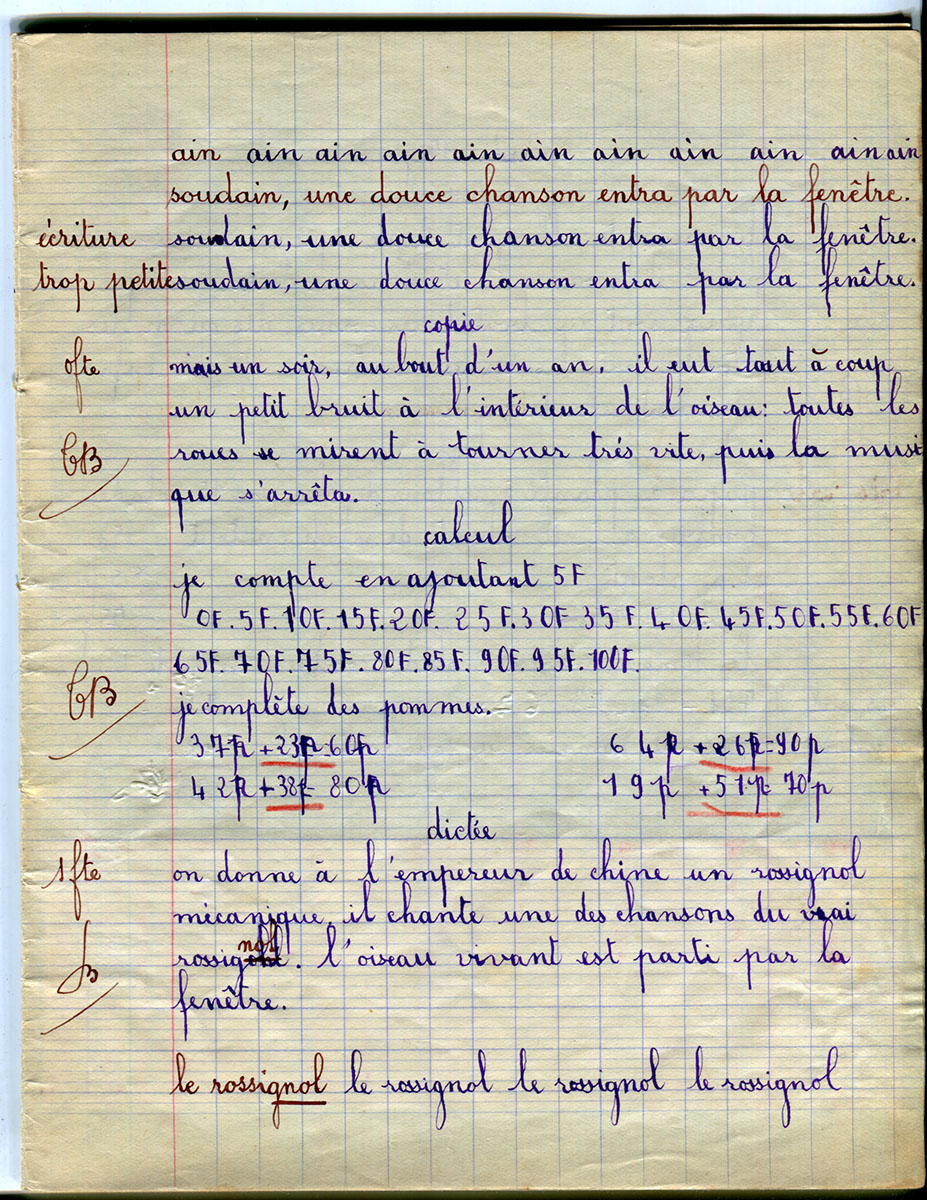 ain ain ain ain ain ain ain ain ain ain ain
soudain, une douce chanson entra par la fenêtre.
écriture soudain, une douce chanson entra par la fenêtre.
trop petite soudain, une douce chanson entra par la fenêtre.
copie
0fte mais un soir, au bout d'un an, il eut tout à coup
un petit bruit à l'intérieur de l'oiseau: toutes les
TB roues se mirent à tourner trés vite, puis la musi
que s'arrêta.
calcul
je compte en ajoutant 5F
0F. 5F. 10F. 15F. 20F. 25F. 30F 35F. 40F. 45F. 50F. 55F. 60F
65F. 70F. 75F. 80F. 85F. 90F. 95F. 100F.
TB je complète des pommes.
37p +23p=60p 64p +26p=90p
42p +38p= 80p 19p +51p= 70p
dictée
1fte on donne à l'empereur de chine un rossignol
mécanique. il chante une des chansons du vrai
B rossignol. l'oiseau vivant est parti par la
fenêtre.
le rossignol le rossignol le rossignol le rossignol